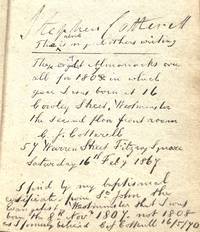 Stephen Cotterell
The above is my mothers writing
These eight Almanacks are
all for 1808 in which
year I was born at 16
Cowley Street, Westminster
the second floor front room
C. J. Cotterell
57 Warren Street Fitzroy Square
Saturday 16th Feby 1867
I find by my baptismal
certificate from St John the
Evangelist Westminster that I was
born the 8th Novr 1807. not 1808
as I formerly believed C J Cotterell 16/5/70